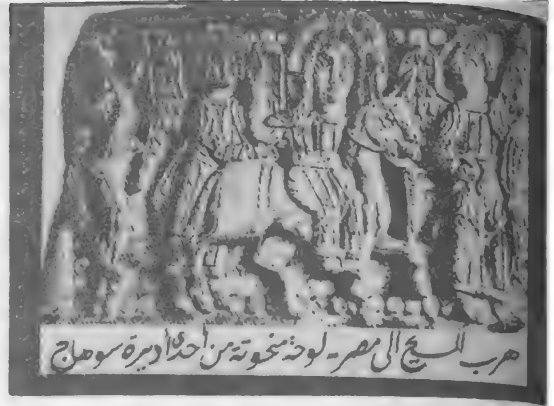 هرب المسيح الى مصر - لوحة منحوتة من احدى أديرة سوهاج